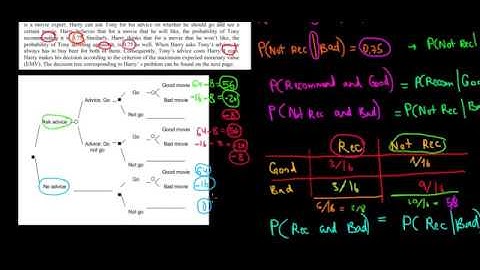 is a movie expert. Harry can ask Tony for his advice on whether he should go and see a
certain
Harry believes that for a movie that he will like, the probability of Tony
Similarly, Harry thinks that for a movie that he won't like, the
probability of Tony
is 0.75 as well. When Harry asks Tony's advice,
always has to buy beer for both of them. Consequently, Tony's advice costs Harry
Harry makes his decision according to the criterion of the maximum expected monetary value
(EMV). The decision tree corresponding to Harry's problem can be found on the next page.
Ask advice
No advice
Advice: Go
Advice: Do not go
Go
Not go
Good movie
Bad movie
64-8=56
-16-8=-24
-8
Go
Not go
Good movie
Bad movie
64-8=56
-16-8=-24
-8
Go
Not go
Good movie
Bad movie
64
-16
0
P(Not Rec | Bad) = 0,75 → P(Not Rec
P(Recommend and Good) = P(Recom | Good
P(Not Rec and Bad) = P(Not Rec | B
Rec Not Rec
Good 3/16 1/16
Bad 3/16 9/16
6/16 = 3/8 10/16 = 5/8
P(Rec and Bad) = P(Rec | Bad)